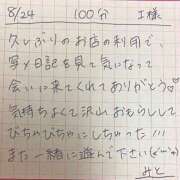 8/24 100分 I様
久しぶりのお店の利用で、
写メ日記を見て気になって
会いに来てくれてありがとう♡
気持ちよくて沢山おもらしして
びちゃびちゃにしちゃった!!!
また一緒に遊んで下さい(
みと